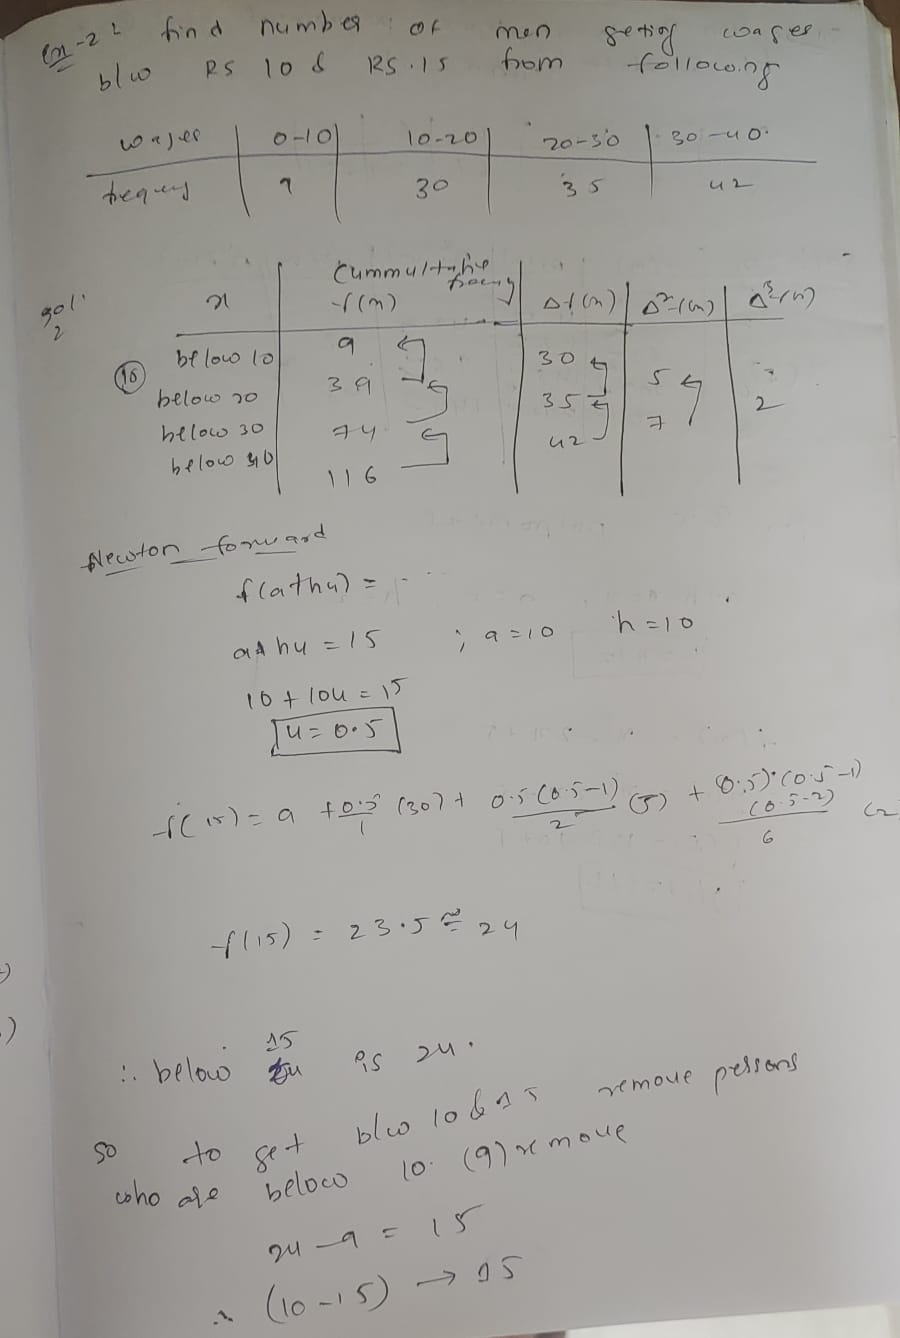 Ex-2: find number of men geting wages
b/w RS 10 & RS.15 from following
wages | 0-10 | 10-20 | 20-30 | 30-40
frequey | 9 | 30 | 35 | 42
sol:
2
x | Cummultative frequency f(x) | Δf(x) | Δ²f(x) | Δ³f(x)
below 10 | 9 | 30 | 5 | 2
15
below 20 | 39 | 35 | 7
below 30 | 74 | 42
below 40 | 116
Newton forward
f(a+hu) = ...
a+hu = 15 ; a=10 h=10
10 + 10u = 15
u = 0.5
f(15) = 9 + 0.5/1 (30) + 0.5(0.5-1)/2 (5) + (0.5)(0.5-1)(0.5-2)/6 (2
f(15) = 23.5 ≅ 24
∴ below 15 is 24.
so to get b/w 10 & 15 remove persons
who are below 10. (9) remove
24-9 = 15
∴ (10-15) → 15